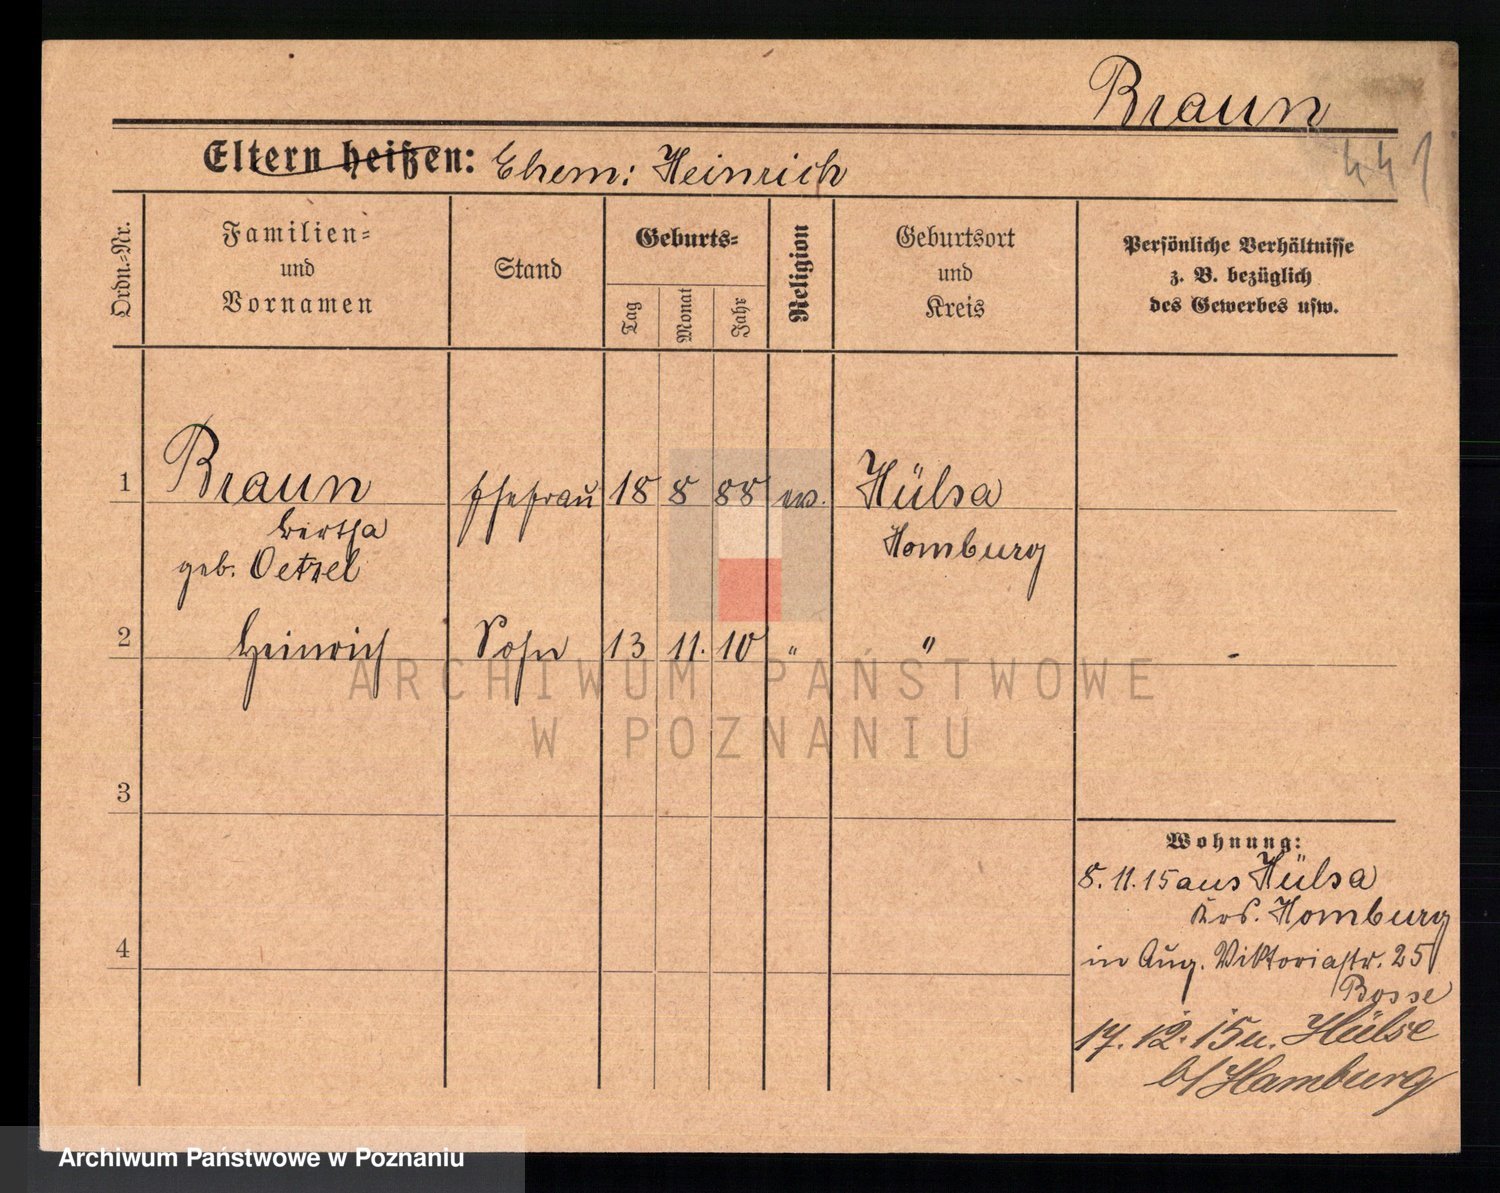 Braun
441
Eltern heißen: Ehem: Heinrich
Ordn.-Nr.
Familien-
und
Vornamen
Stand
Geburts-
Tag
Monat
Jahr
Religion
Geburtsort
und
Kreis
Persönliche Verhältnisse
z. B. bezüglich
des Gewerbes usw.
1 Braun Ehefrau 18 8 88 ev. Hülsa
Bertha Homburg
geb. Oetzel
2 Heinrich Sohn 13 11. 10 " "
ARCHIWUM PAŃSTWOWE
W POZNANIU
3
4
Wohnung:
8. 11. 15 aus Hülsa
Krs. Homburg
in Aug. Viktoriastr. 25
Bosse
17. 12. 15 n. Hülse
b/Hamburg
Archiwum Państwowe w Poznaniu